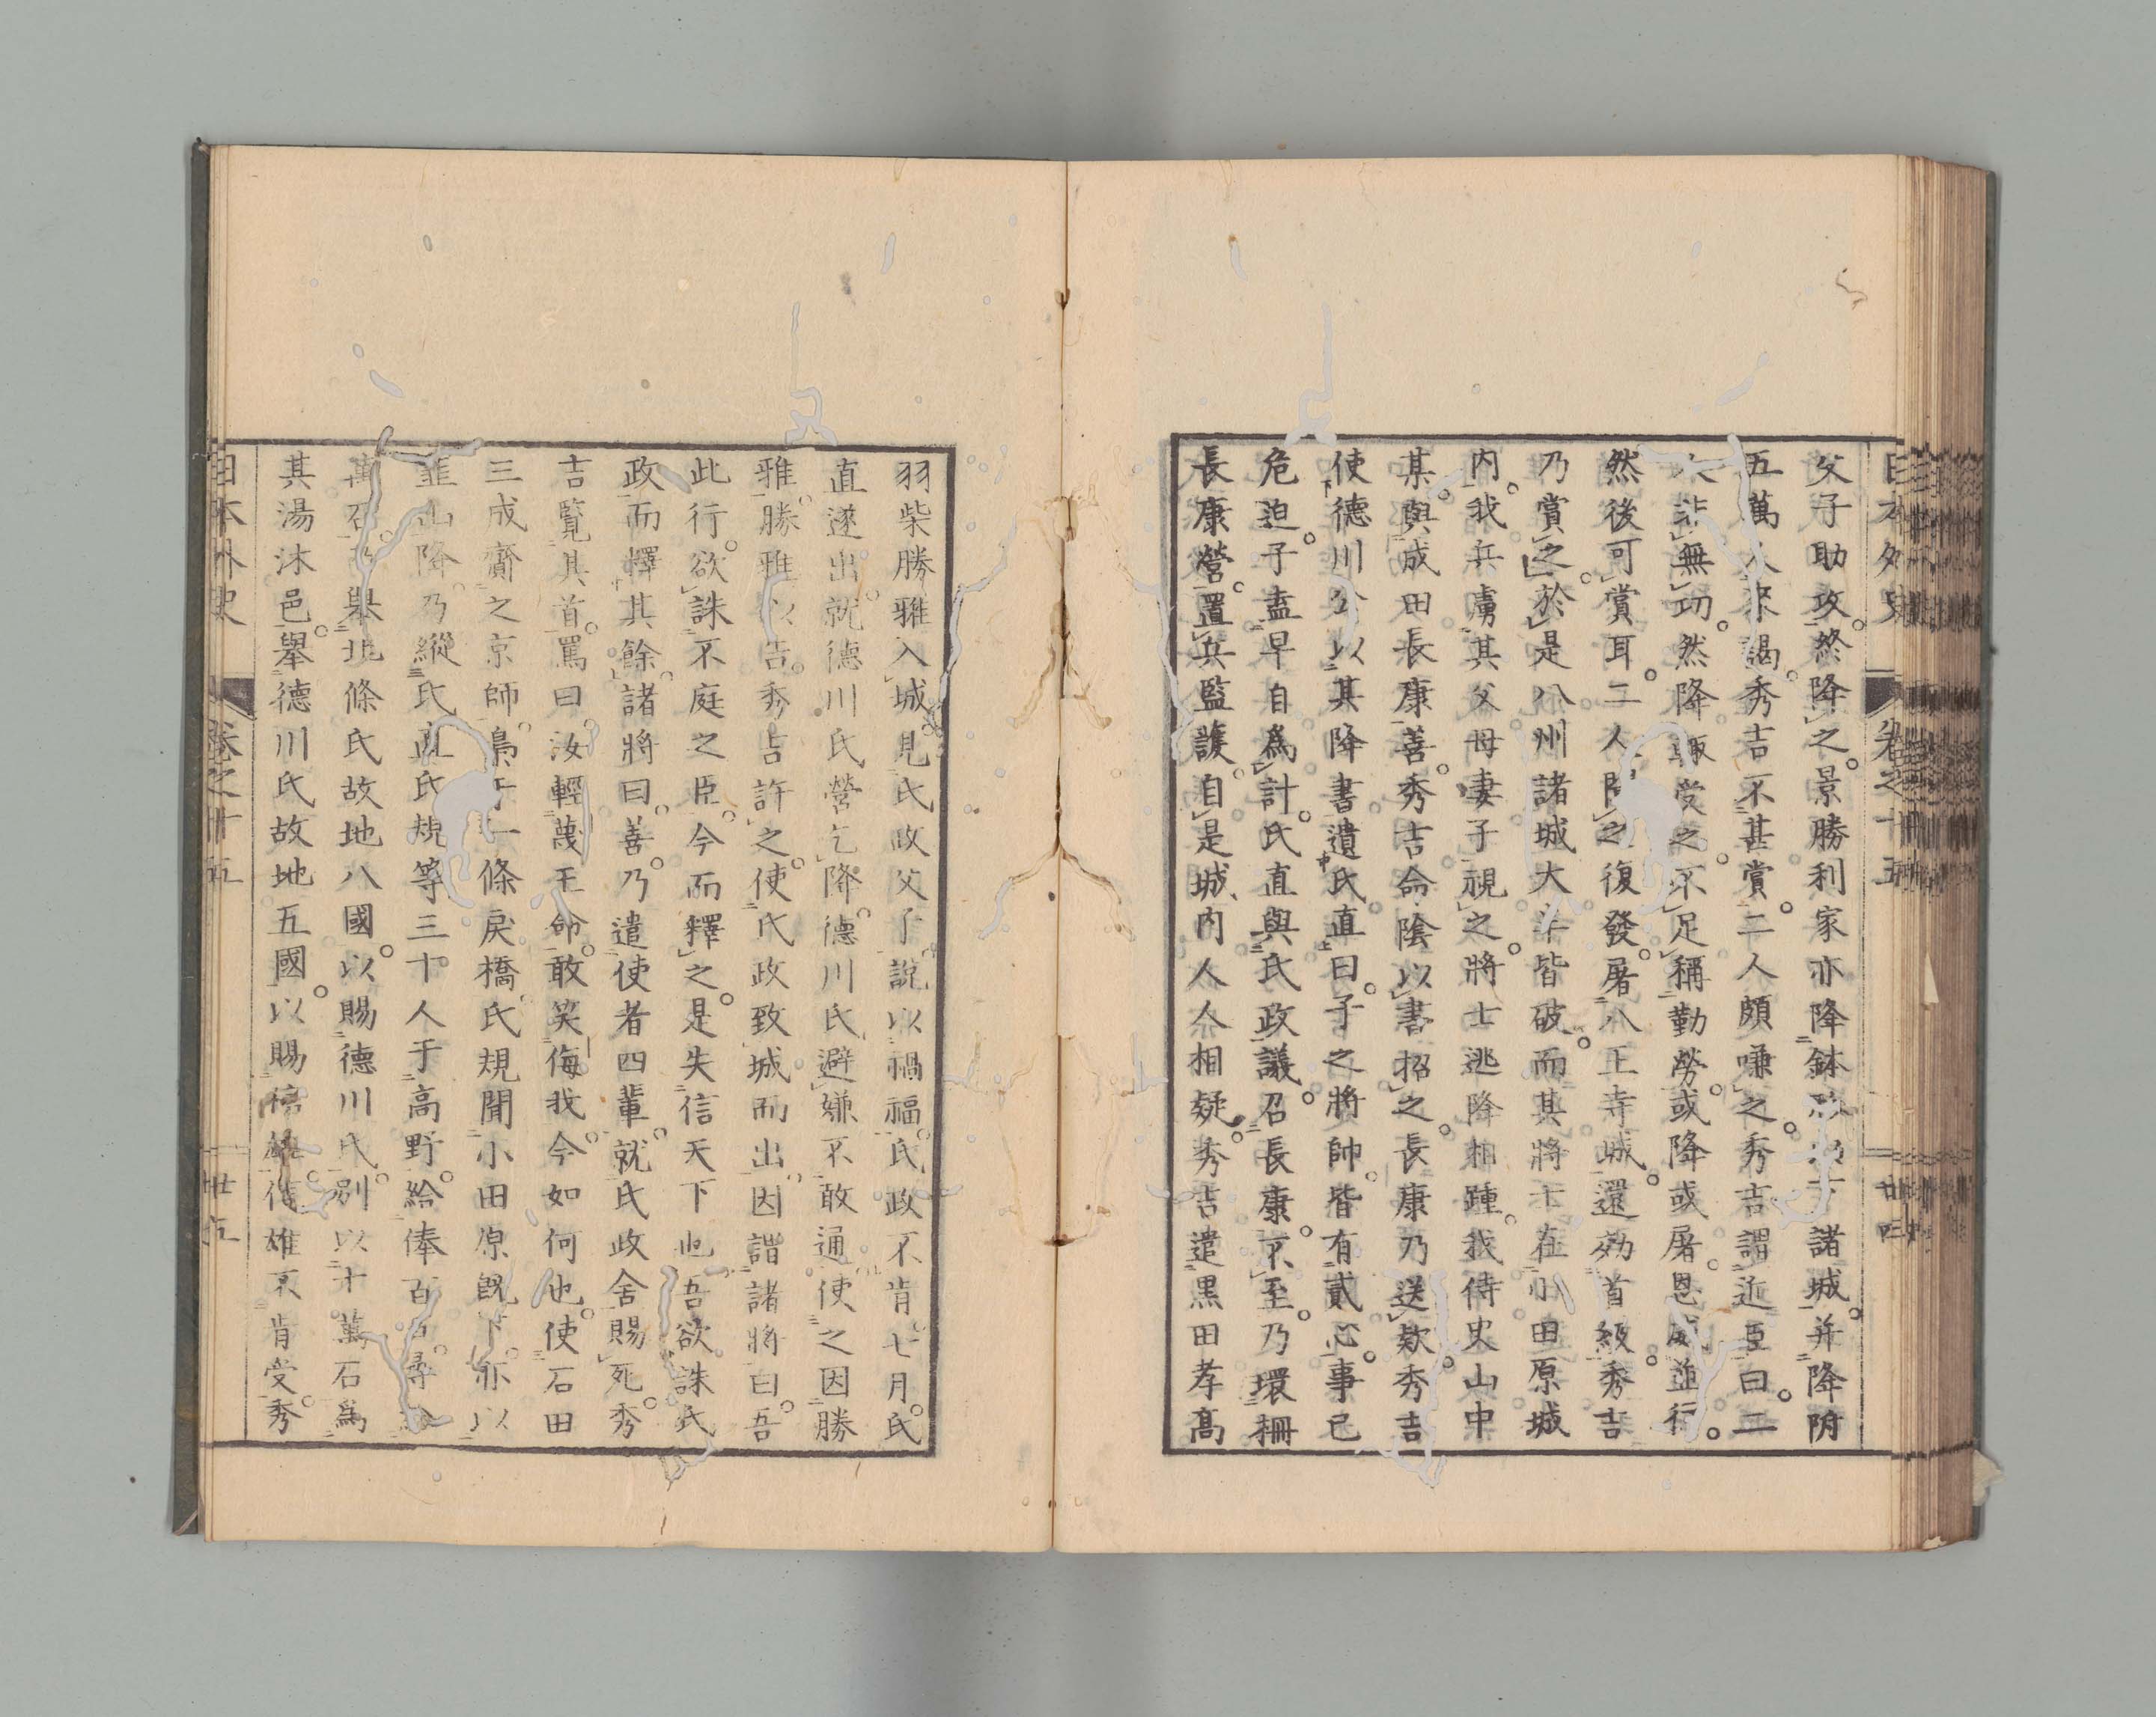 日本外史 卷之十五 廿四
父子助攻終降之景勝利家亦降鉢形八王子諸城并降附
五萬人來謁秀吉不甚賞二人頗嗛之秀吉謂近臣曰二
人非無功然降輙受之不足稱勤勞或降或屠恩威並行
然後可賞耳二人聞之復發屠八王寺城還効首級秀吉
乃賞之於是八州諸城大半皆破而其將士在小田原城
内我兵虜其父母妻子視之將士逃降相踵我侍史山中
某與成田長康善秀吉命陰以書招之長康乃送欵秀吉
使德川公以其降書遺氏直曰子之將帥皆有貳心事已
危迫子盍早自爲計氏直與氏政議召長康不至乃環柵
長康營置兵監護自是城内人人相疑秀吉遣黒田孝高
羽柴勝雅入城見氏政父子說以禍福氏政不肯七月氏
直遂出就德川氏營乞降德川氏避嫌不敢通使之因勝
雅勝雅以告秀吉許之使氏政致城而出因諮諸將曰吾
此行欲誅不庭之臣今而釋之是失信天下也吾欲誅氏
政而釋其餘諸將曰善乃遣使者四輩就氏政舍賜死秀
吉覽其首罵曰汝輕蔑王命敢笑侮我今如何也使石田
三成齎之京師梟于一條戾橋氏規聞小田原既下亦以
韮山降乃縱氏直氏規等三十人于高野給俸百口尋給
萬石乃舉北條氏故地八國以賜德川氏別以十萬石爲
其湯沐邑舉德川氏故地五國以賜信雄信雄不肯受秀
日本外史 卷之十五 廿五